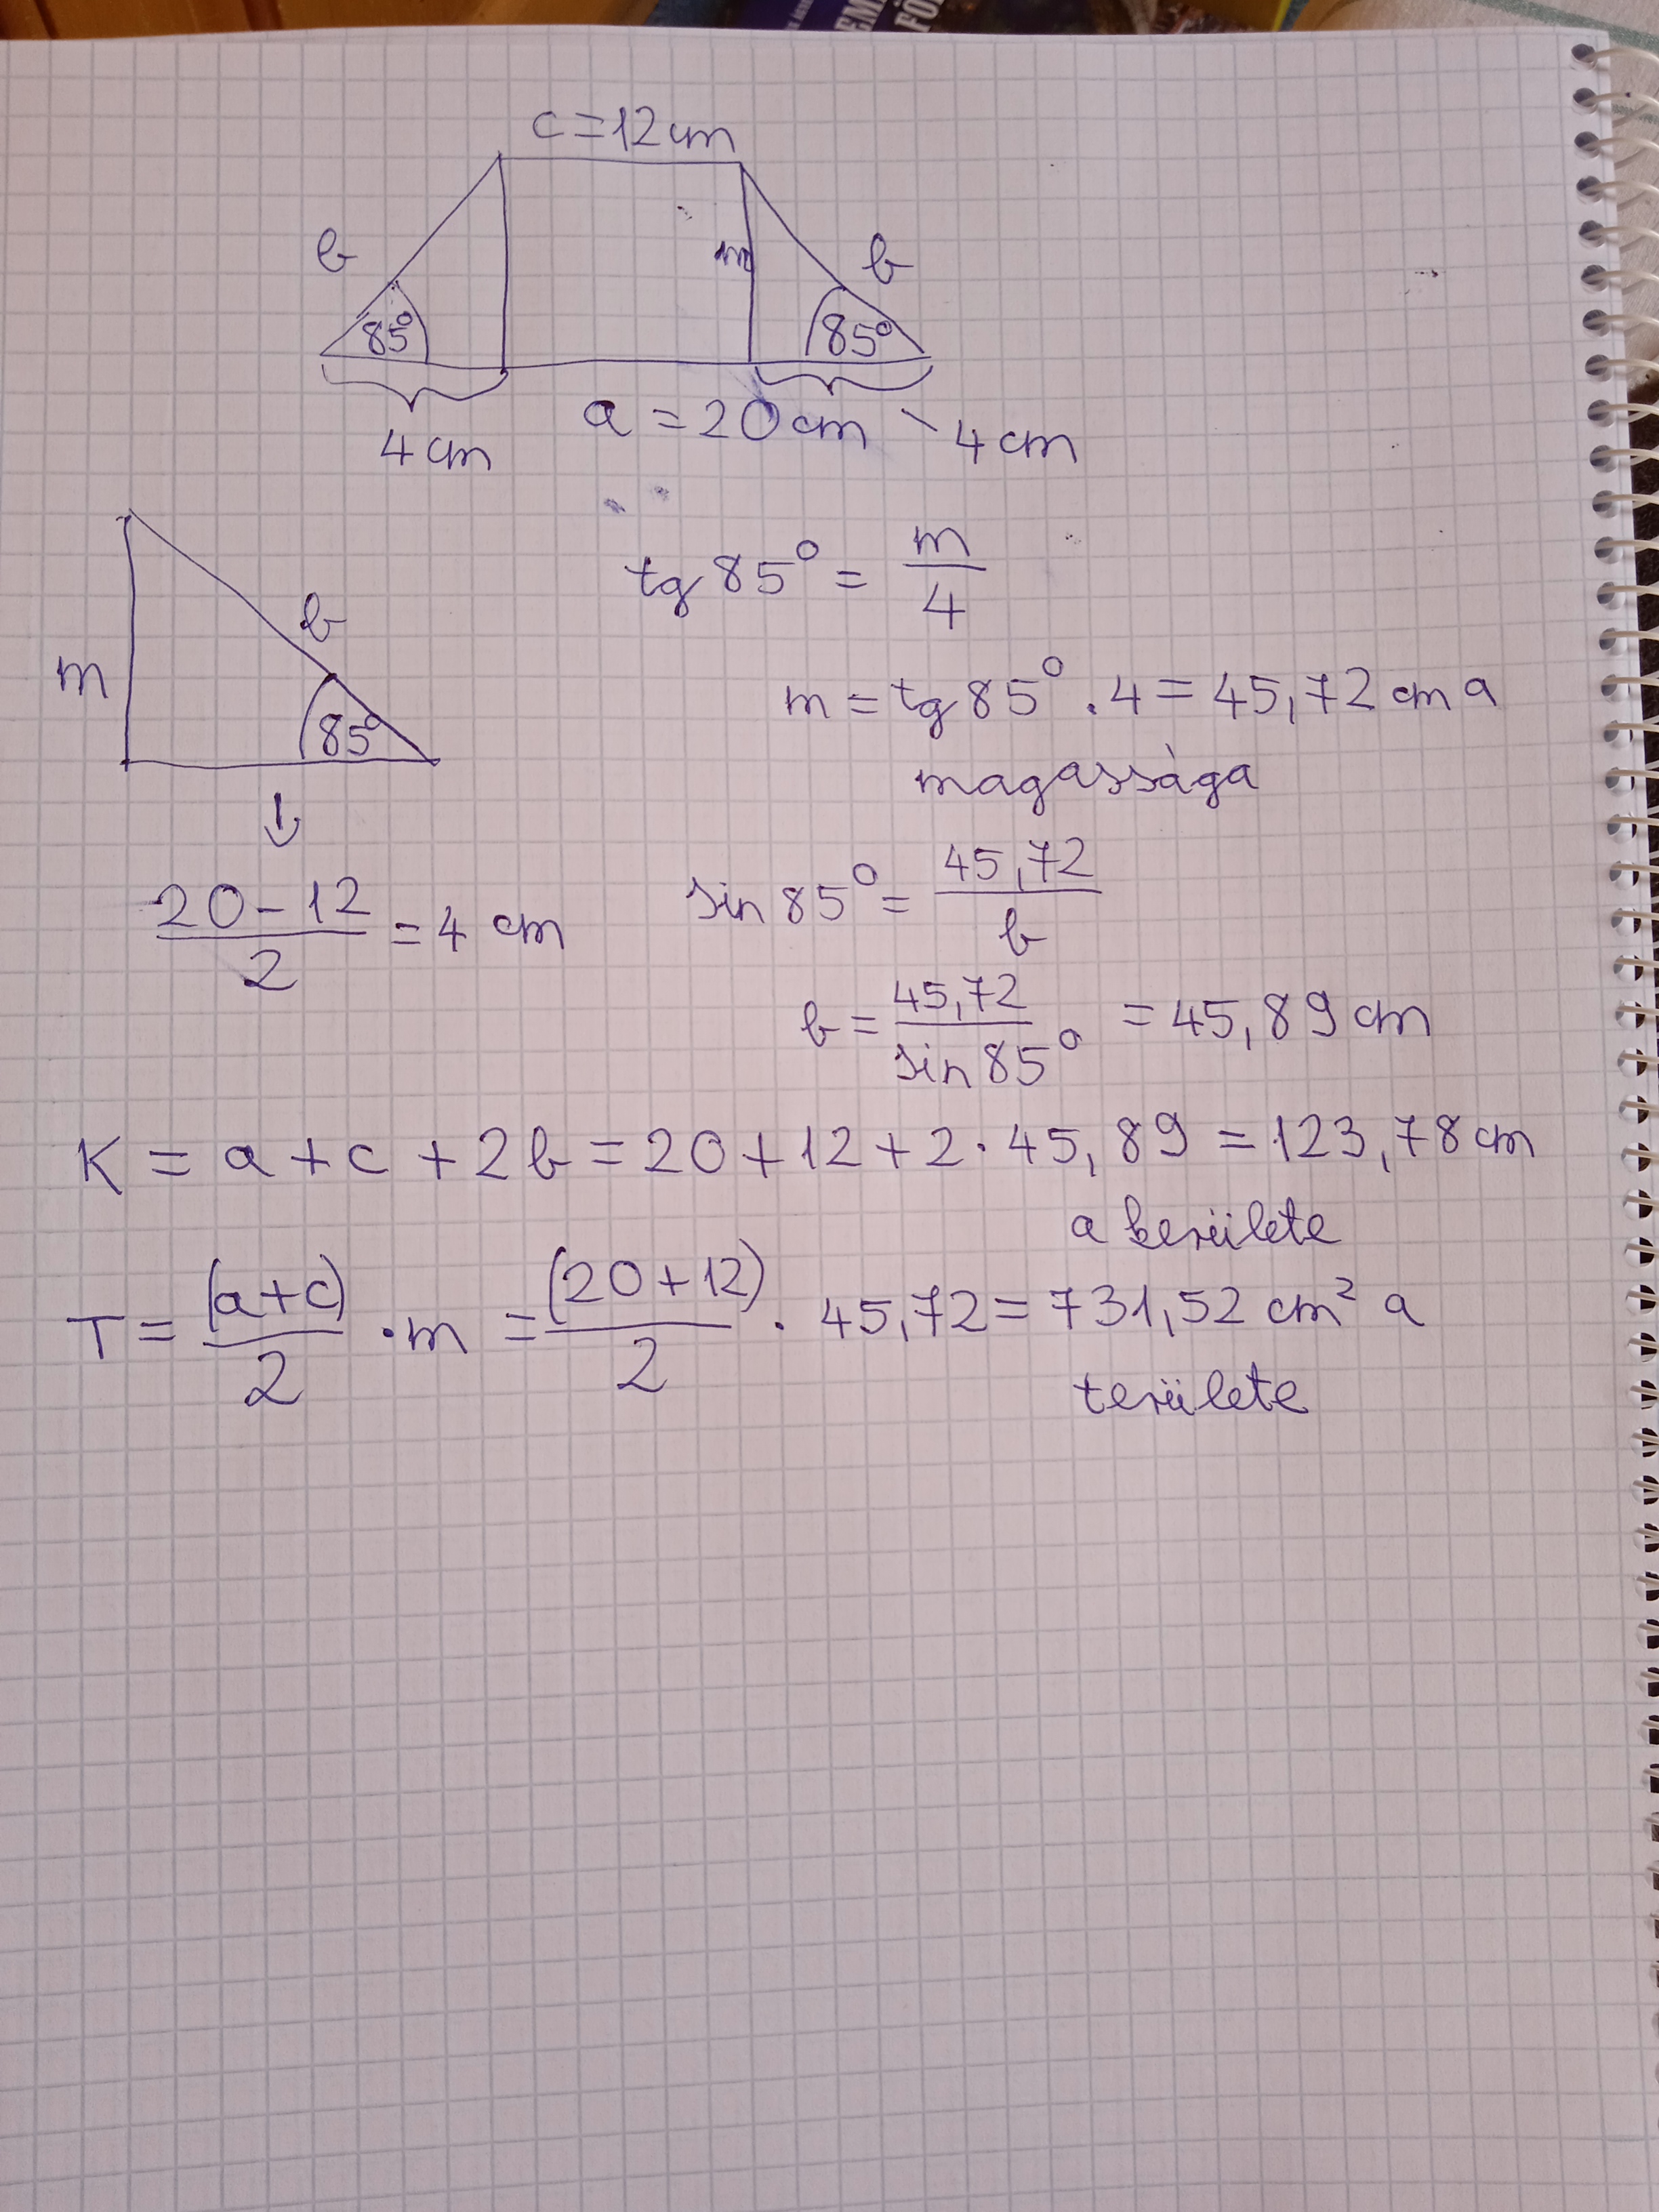 EMI
FÖL
c = 12 cm
b
m
b
85°
85°
4 cm
a = 20 cm
4 cm
tg 85° = m/4
b
m
85°
m = tg 85° . 4 = 45,72 cm a
magassága
↓
(20 - 12)/2 = 4 cm
sin 85° = 45,72/b
b = 45,72/sin 85° = 45,89 cm
K = a + c + 2b = 20 + 12 + 2 · 45,89 = 123,78 cm
a kerülete
T = (a+c)/2 · m = (20+12)/2 · 45,72 = 731,52 cm² a
területe